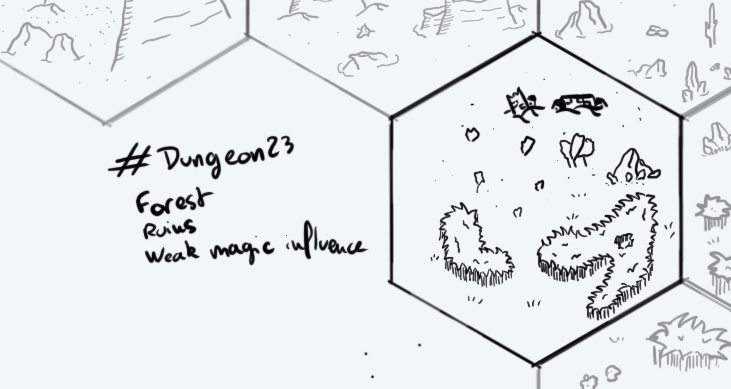 #Dungeon23
Forest
Ruins
Weak magic influence